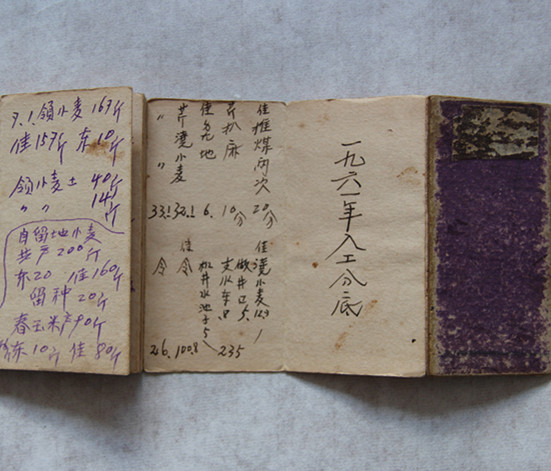 7.1.领小麦163斤
佳153斤 东10斤
领小麦土 40斤
〃 〃 14斤
自留地小麦
共产200斤
东20 佳160斤
留种20斤
春玉米产90斤
东10斤 佳80斤
一九六一年入工分底
佳推煤两次 20分
芹扒麻 10分
佳刨地 6.
芹浇小麦 32.1
〃 〃 33.1
佳浇小麦12.3
做井口5.
支水车.8
235
机井水池子5
佳令 100.8
令 26.